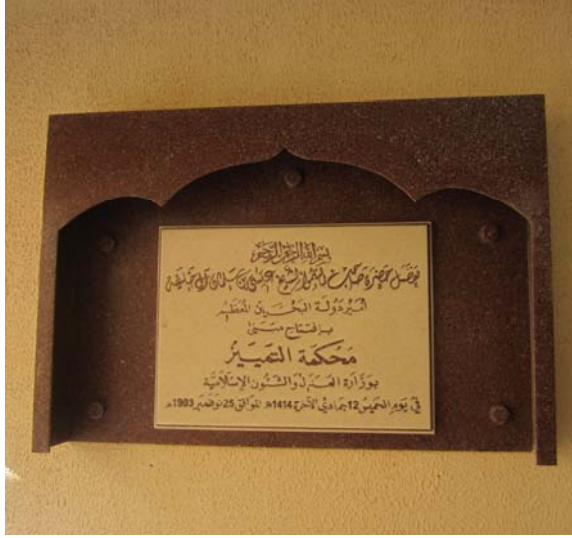 بسم الله الرحمن الرحيم
تفضل حضرة صاحب السمو الشيخ عيسى بن سلمان آل خليفة
أمير دولة البحرين المعظم
بإفتتاح مبنى
محكمة التمييز
بوزارة العدل والشئون الإسلامية
في يوم الخميس 12 جمادي الآخرة 1414هـ الموافق 25 نوفمبر 1993م